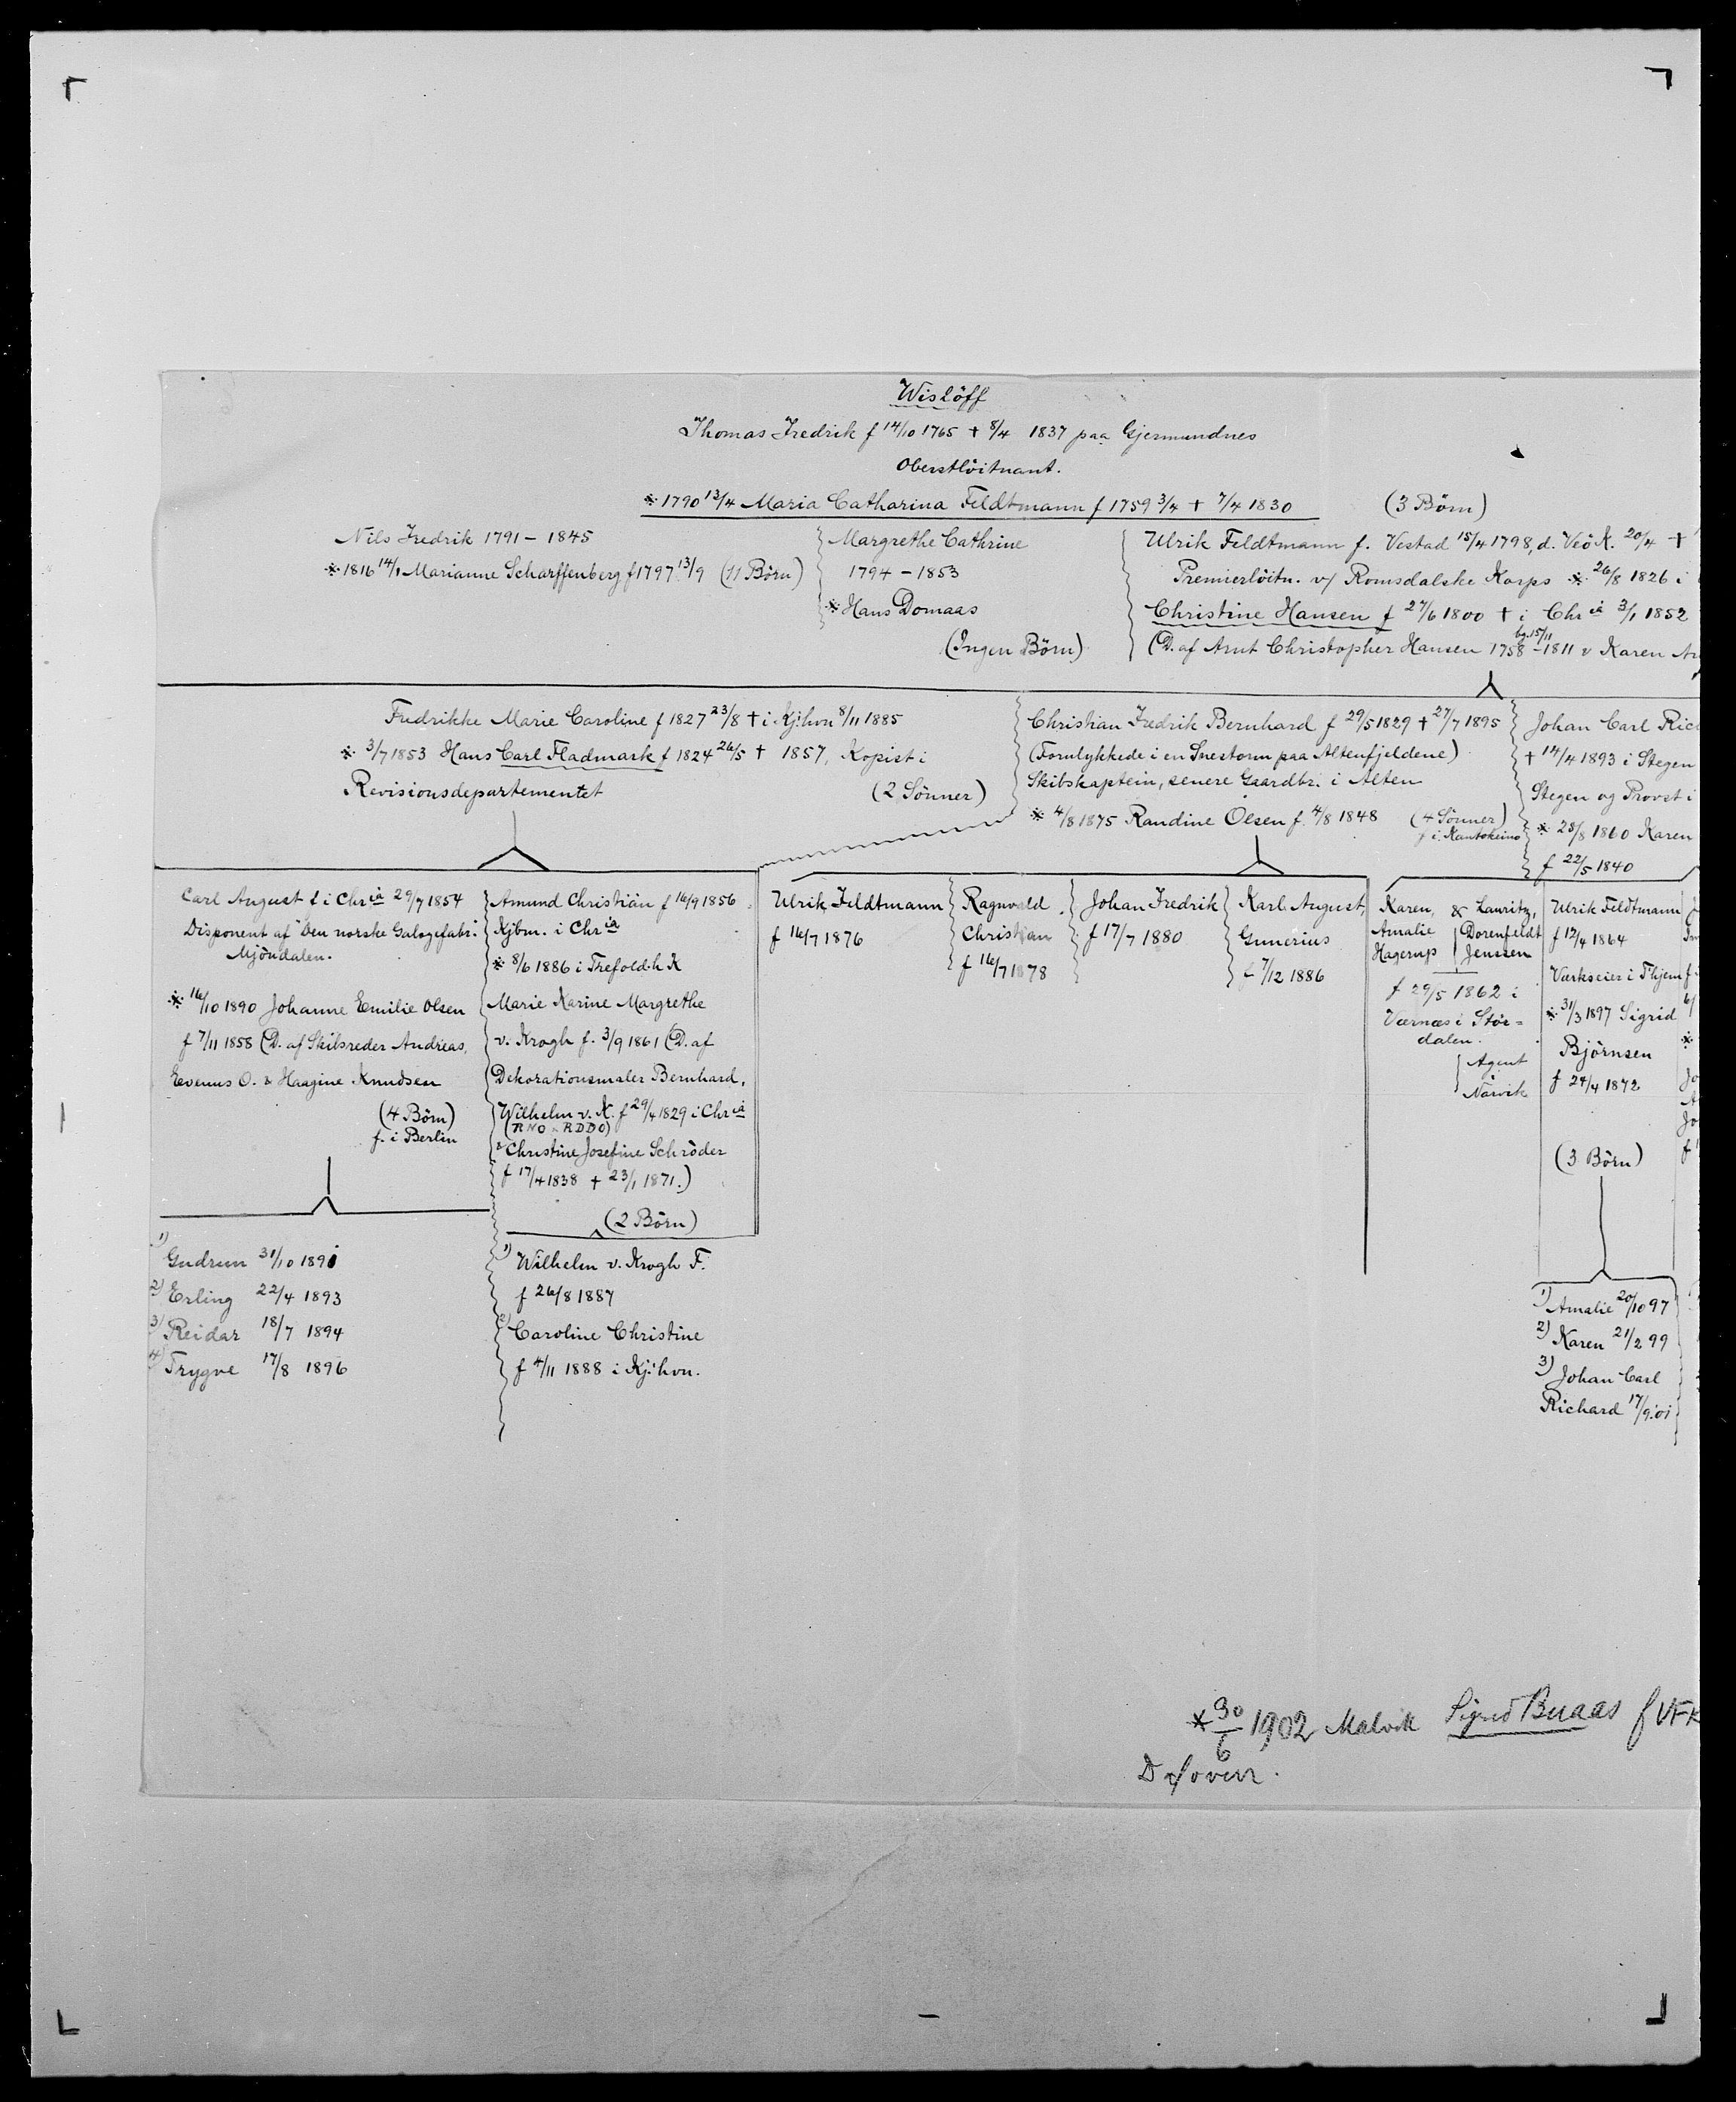 Wislöff
Thomas Fredrik f 14/10 1765 † 8/4 1837 paa Gjermundnes
Oberstlöitnant.
※ 1790 13/4 Maria Catharina Feldtmann f 1759 3/4 † 7/4 1830 (3 Börn)
Nils Fredrik 1791 - 1845
※ 1816 14/1 Marianne Scharffenberg f 1797 13/9 (11 Börn)
Margrethe Cathrine
1794 - 1853
※ Hans Domaas
(Ingen Börn)
Ulrik Feldtmann f. Vestad 15/4 1798, d. Veö K. 20/4 †
Premierlöitn. v/ Romsdalske Korps ※ 26/8 1826 i
Christine Hansen f 27/6 1800 † i Chria 3/1 1852
bg. 15/11
(D. af Arnt Christopher Hansen 1758 - 1811 v Karen
Fredrikke Marie Caroline f 1827 23/8 † i Kjhvn 8/11 1885
※ 3/7 1853 Hans Carl Fladmark f 1824 26/5 † 1857, Kopist i
Revisionsdepartementet (2 Sönner)
Christian Fredrik Bernhard f 29/5 1829 † 27/7 1895
(Forulykkede i en Snestorm paa Altenfjeldene)
Skibskaptein, senere Gaardbr. i Alten
※ 4/8 1875 Randine Olsen f. 4/8 1848 (4 Sönner)
f i Kautokeino
Johan Carl Ric
† 14/4 1893 i Stegen
Stegen og Provst i
※ 28/8 1860 Karen
f 22/5 1840
Carl August f i Chria 29/7 1854
Disponent af "Den norske Galogefabr.
Mjöndalen.
※ 16/10 1890 Johanne Emilie Olsen
f 7/11 1858 (D. af Skibsreder Andreas,
Evenus O. & Haagine Knudsen
(4 Börn)
f. i Berlin
1) Gudrun 31/10 1891
2) Erling 22/4 1893
3) Reidar 18/7 1894
4) Trygve 17/8 1896
Amund Christian f 16/9 1856
Kjbm. i Chria
※ 8/6 1886 i Trefold.h K
Marie Karine Margrethe
v. Krogh f. 3/9 1861 (D. af
Dekorationsmaler Bernhard,
Wilhelm v. K. f 29/4 1829 i Chria
(RNO - RDDO)
& Christine Josefine Schröder
f 17/4 1838 † 23/1 1871.)
(2 Börn)
1) Wilhelm v. Krogh F.
f 26/8 1887
2) Caroline Christine
f 4/11 1888 i Kj:hvn.
Ulrik Feldtmann
f 16/7 1876
Ragnvald
Christian
f 16/7 1878
Johan Fredrik
f 17/7 1880
Karl August,
Gunerius
f 7/12 1886
Karen, & Lauritz,
Amalie Dorenfeldt
Hagerup Jenssen
f 29/5 1862 i
Værnes i Stör=
dalen.
Agent
Narvik
Ulrik Feldtmann
f 12/4 1864
Værkseier i T'hjem
※ 31/3 1897 Sigrid
Björnsen
f 24/4 1872
(3 Börn)
1) Amalie 20/10 97
2) Karen 21/2 99
3) Johan Carl
Richard 17/9.01
※ 30/6 1902 Malvik Sigrid Buaas f